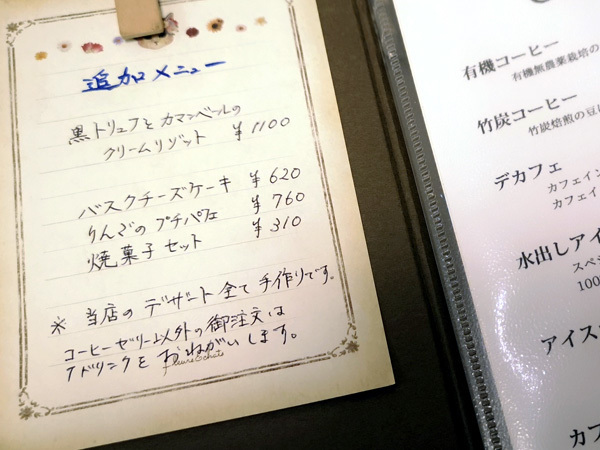 追加メニュー
黒トリュフとカマンベールの
クリームリゾット ¥1100
バスクチーズケーキ ¥620
りんごのプチパフェ ¥760
焼菓子セット ¥310
※ 当店のデザート全て手作りです。
コーヒーゼリー以外の御注文は
1ドリンクをおねがいします。
有機コーヒー
有機無農薬栽培の
竹炭コーヒー
竹炭焙煎の豆
デカフェ
カフェイン
カフェイ
水出しアイ
スペ
100
アイス
カフ